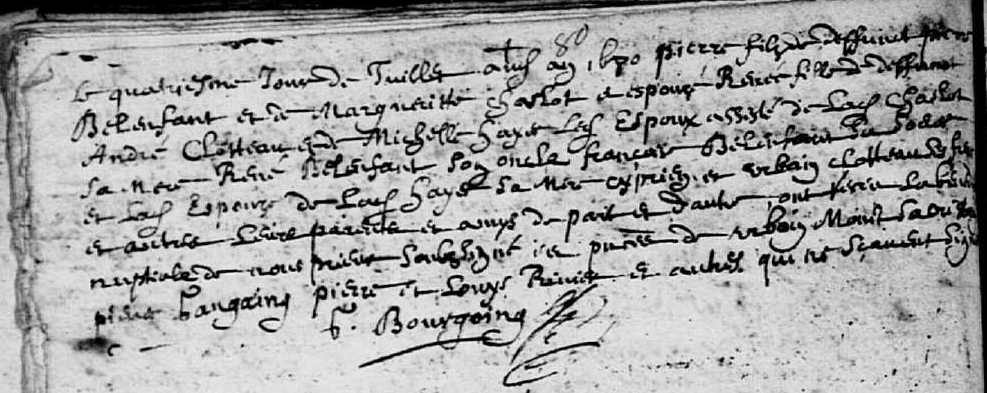 Le quatriesme Jour de Juillet aud an 1670 pierre filz de deffunct pierre
Belenfant et de Margueritte charlot a espousé Renée fille de deffunct
André Clotteau et de Michelle haye led Espoux assisté de lad charlot
sa mere René Belenfant son oncle françois Belenfant sa soeur
et lad Espouze de lad haye sa mere cyprien et urbain clotteau ses freres
et autres leurs parents et amys de part et d'autre, ont receu la bened
nuptiale de nous prieur soubzsigné en pnces de urbain Morist sacristain
pierre pierre et Louys Rivier et autres qui ne sçavent signer
h. Bourgoing